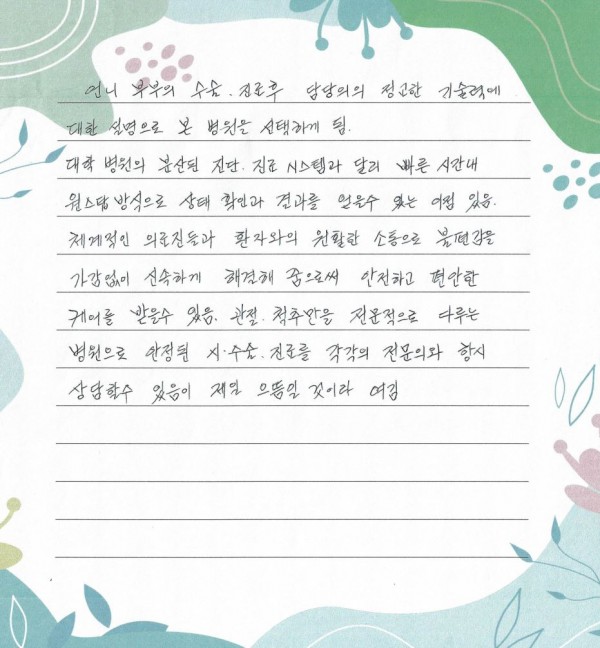 언니 부부의 수술.진료후 담당의의 정교한 기술력에
대한 설명으로 본 병원을 선택하게 됨.
대학 병원의 분산된 진단.진료 시스템과 달리 빠른 시간내
원스탑방식으로 상태 확인과 결과를 얻을수 있는 이점 있음.
체계적인 의료진들과 환자와의 원활한 소통으로 불편감을
가감없이 신속하게 해결해 줌으로써 안전하고 편안한
케어를 받을수 있음. 관절.척추만을 전문적으로 다루는
병원으로 안정된 시·수술.진료를 각각의 전문의와 항시
상담할수 있음이 제일 으뜸일 것이라 여김